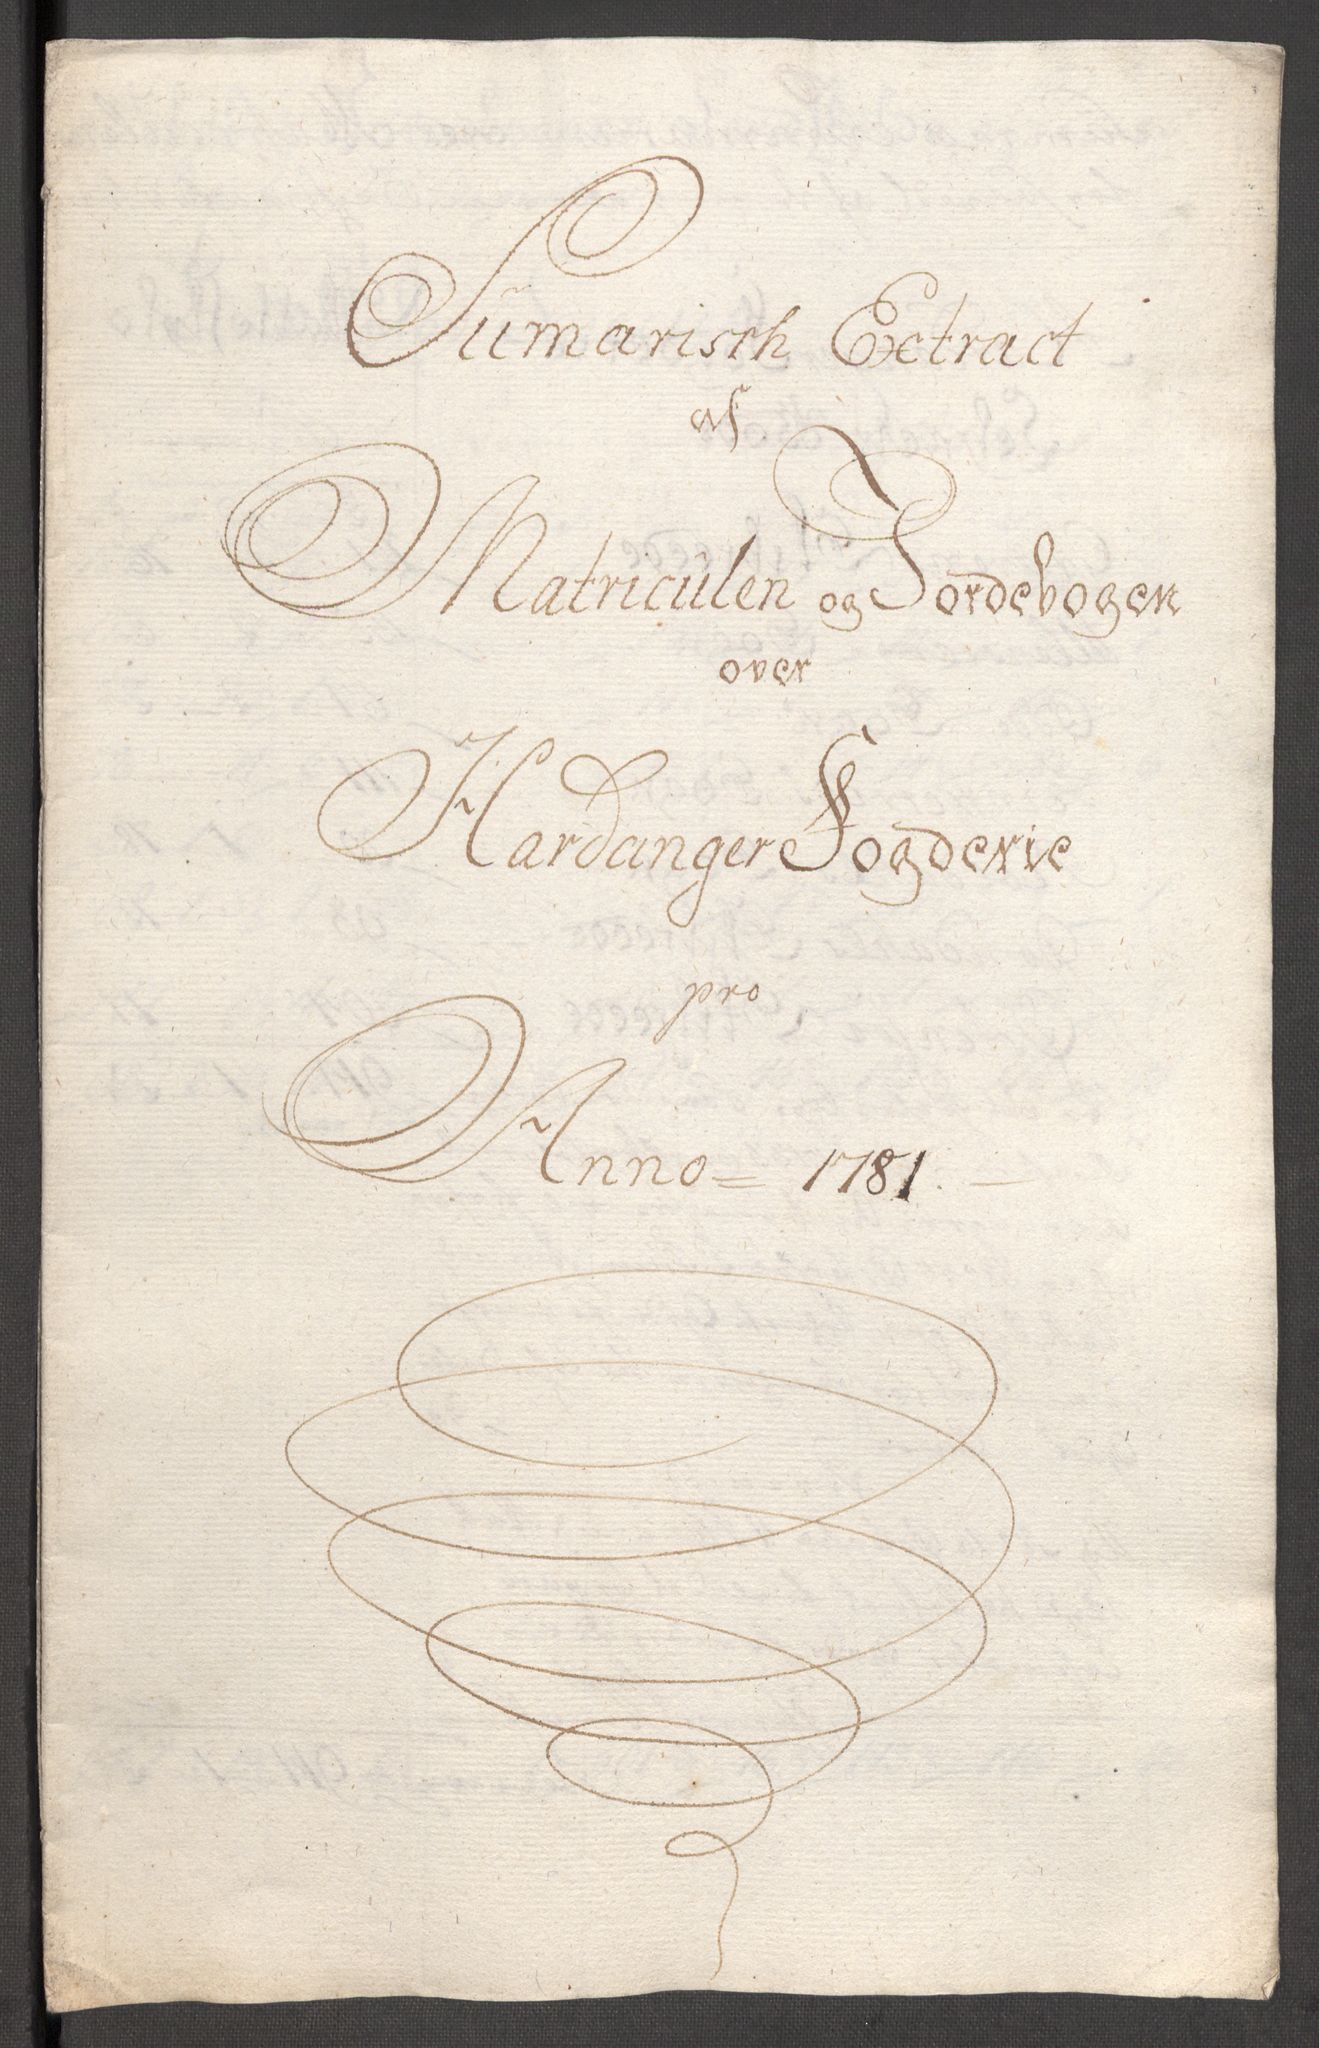 Sum̃arisch Extract
af
Matriculen og Jordebogen
over
Hardanger Fogderie
pro
Anno = 1781. —